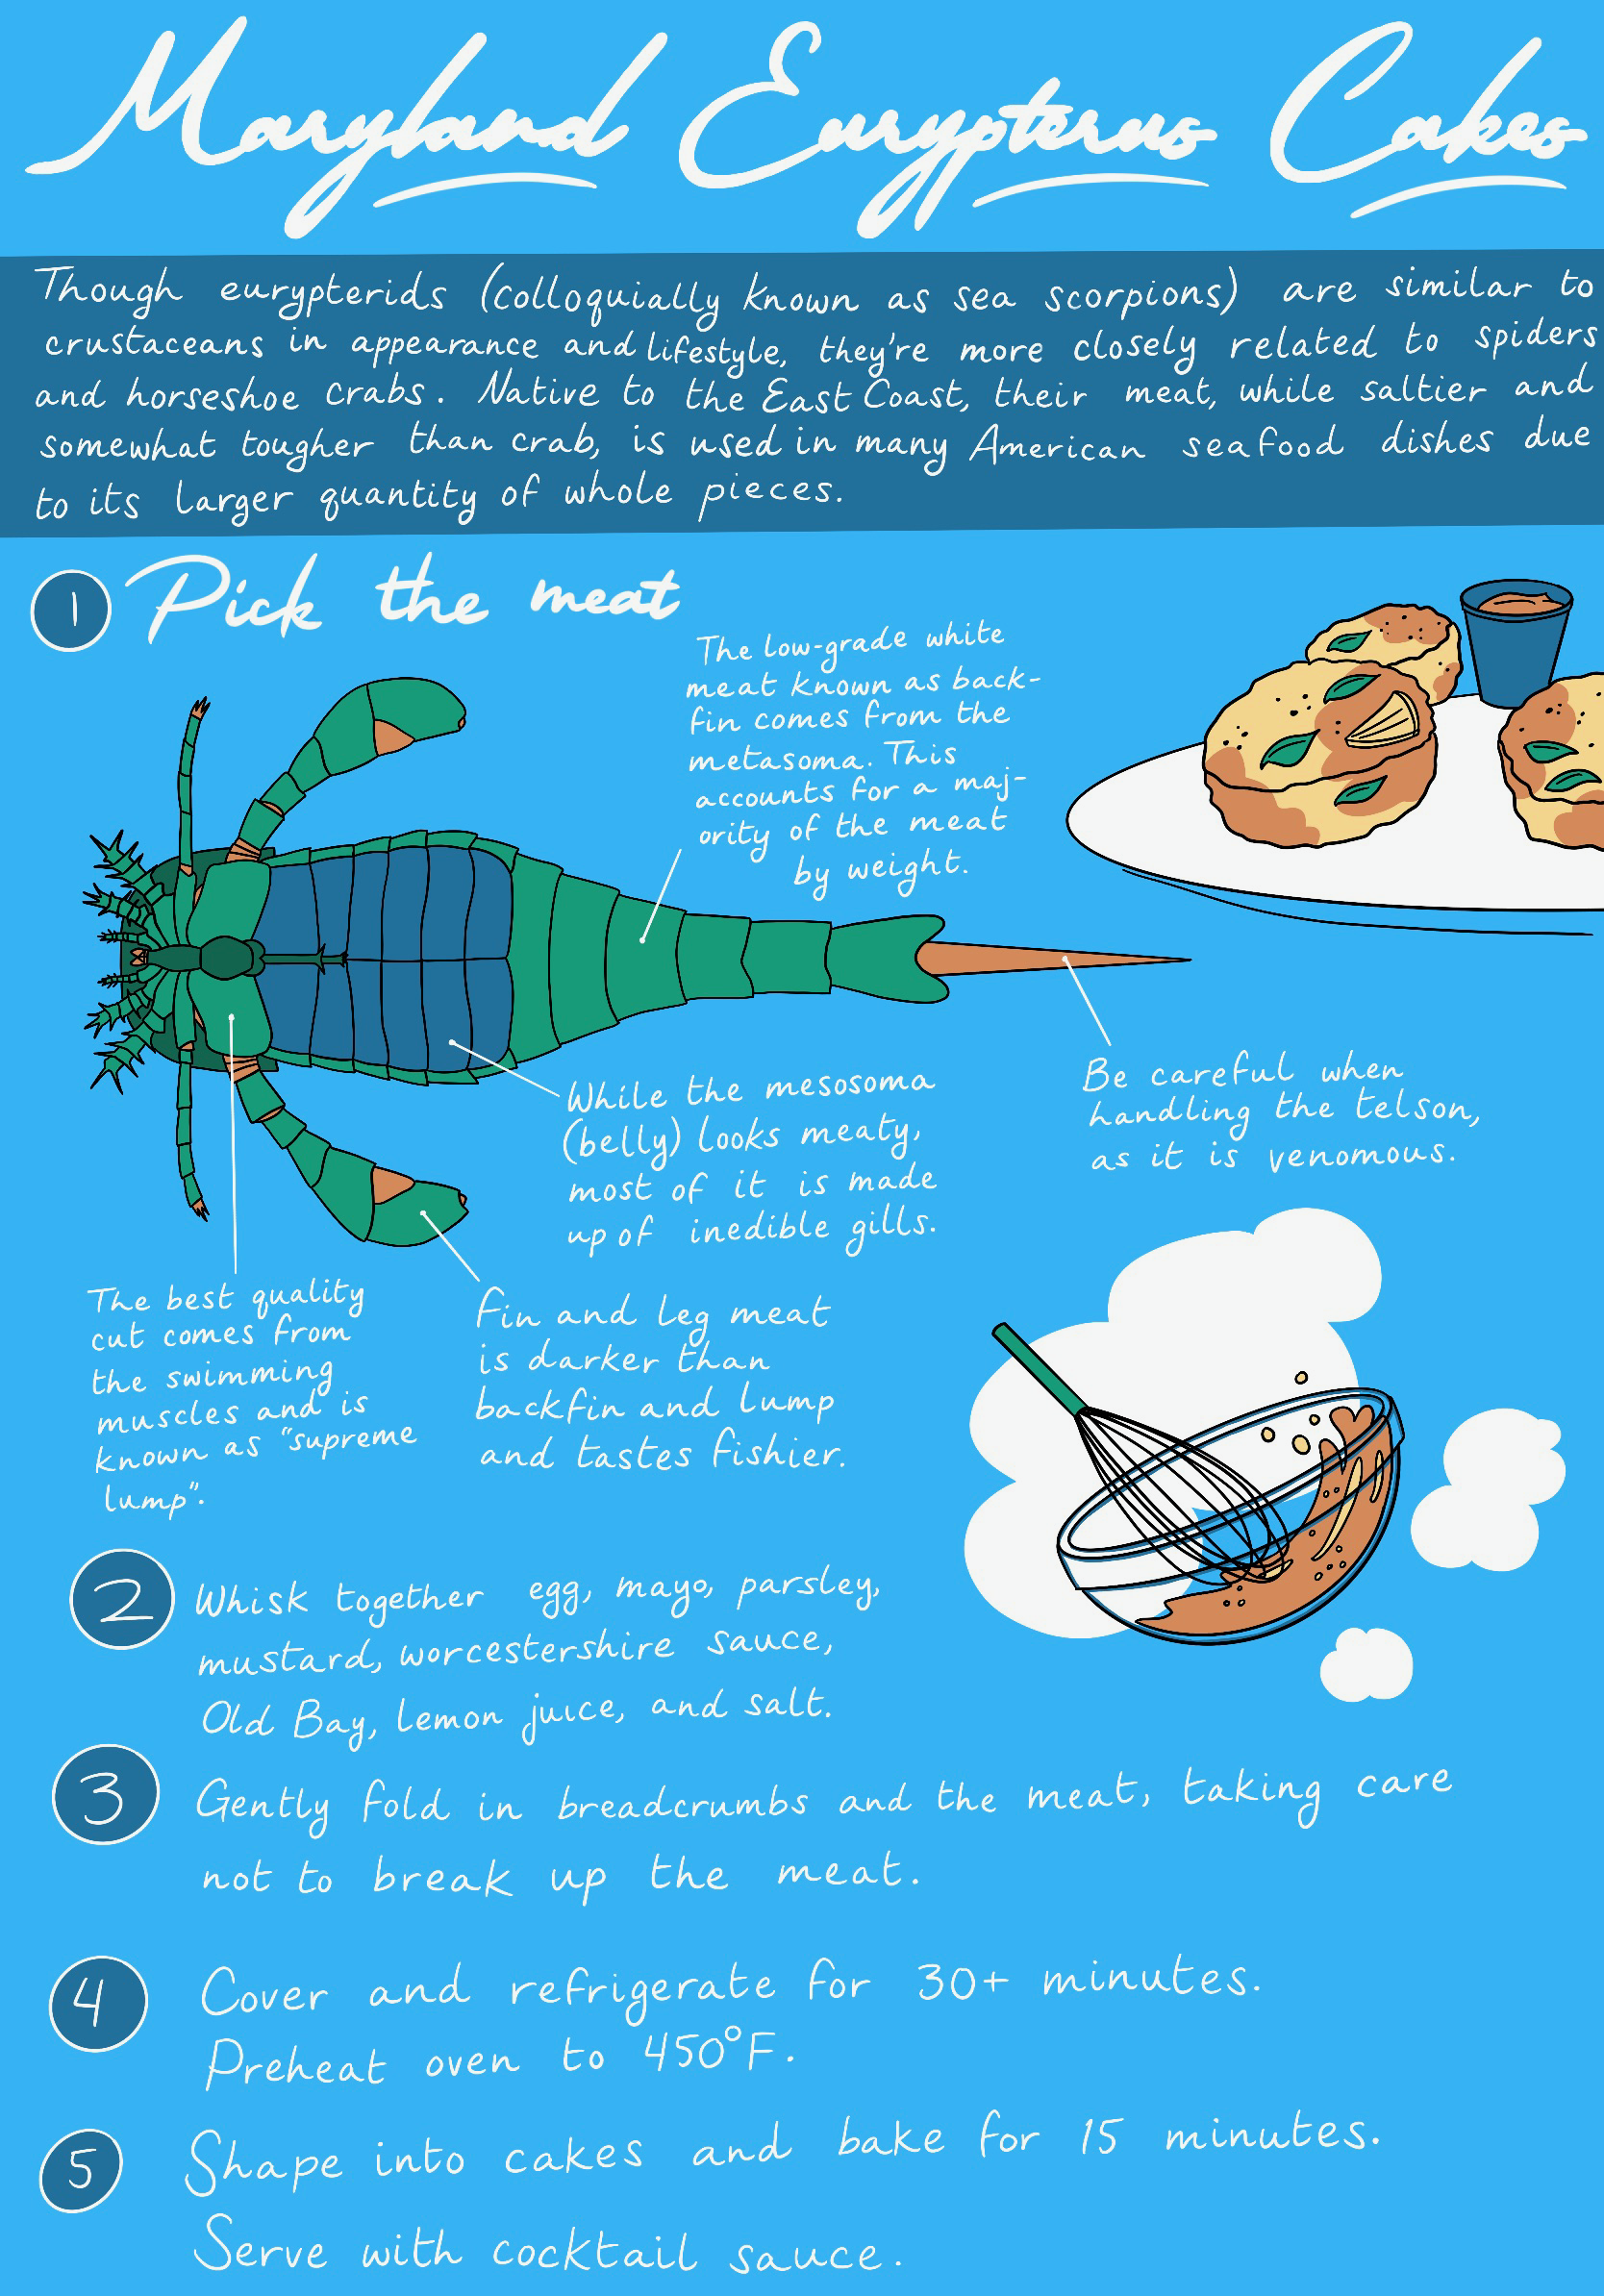 Maryland Eurypterus Cakes
Though eurypterids (colloquially known as sea scorpions) are similar to
crustaceans in appearance and lifestyle, they're more closely related to spiders
and horseshoe crabs. Native to the East Coast, their meat, while saltier and
somewhat tougher than crab, is used in many American seafood dishes due
to its larger quantity of whole pieces.
1 Pick the meat
The low-grade white
meat known as back-
fin comes from the
metasoma. This
accounts for a maj-
ority of the meat
by weight.
Be careful when
handling the telson,
as it is venomous.
While the mesosoma
(belly) looks meaty,
most of it is made
up of inedible gills.
The best quality
cut comes from
the swimming
muscles and is
known as "supreme
lump".
Fin and leg meat
is darker than
backfin and lump
and tastes fishier.
2 Whisk together egg, mayo, parsley,
mustard, worcestershire sauce,
Old Bay, lemon juice, and salt.
3 Gently fold in breadcrumbs and the meat, taking care
not to break up the meat.
4 Cover and refrigerate for 30+ minutes.
Preheat oven to 450°F.
5 Shape into cakes and bake for 15 minutes.
Serve with cocktail sauce.